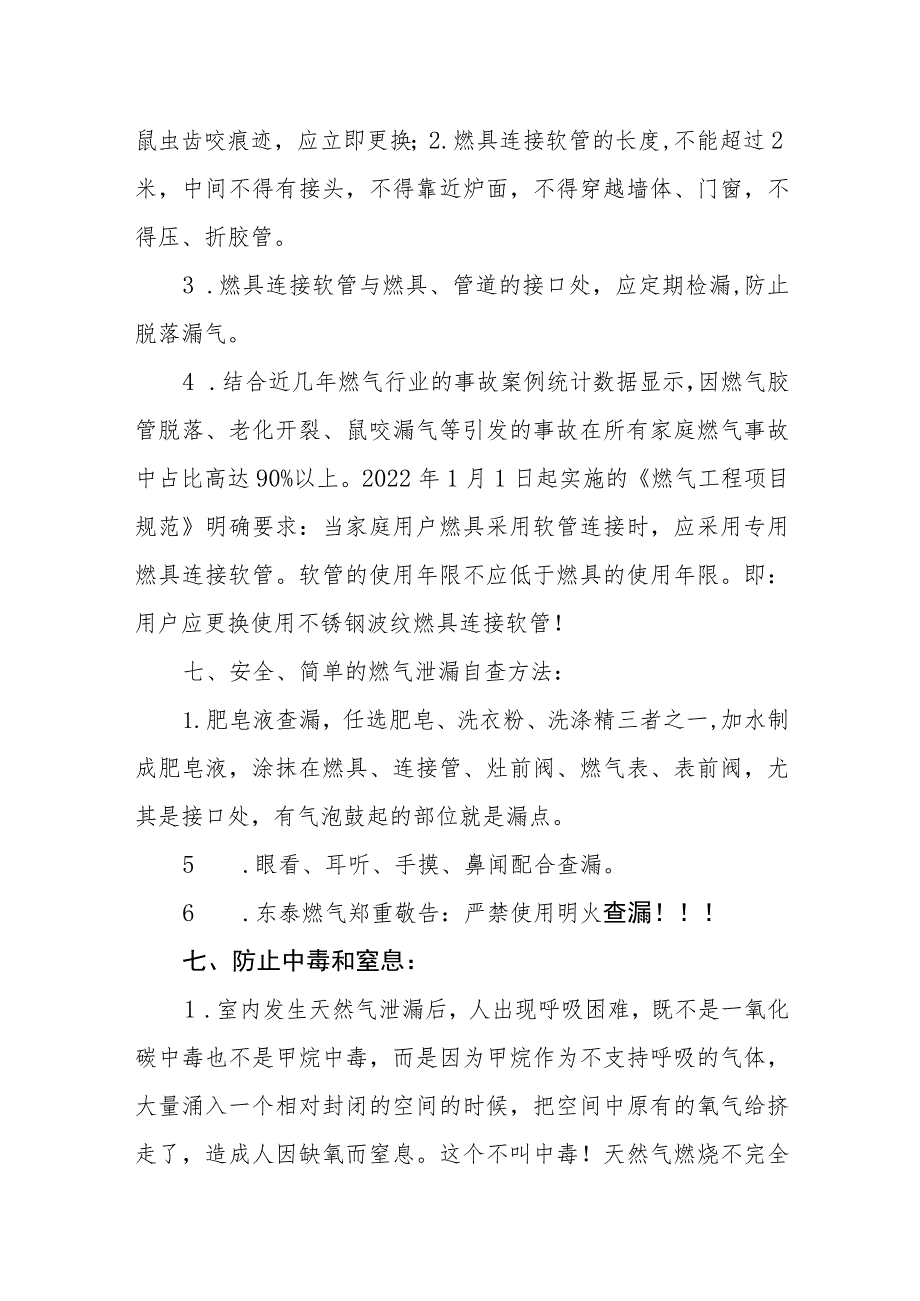 鼠虫齿咬痕迹，应立即更换；2.燃具连接软管的长度,不能超过2
米，中间不得有接头，不得靠近炉面，不得穿越墙体、门窗，不
得压、折胶管。
3 .燃具连接软管与燃具、管道的接口处，应定期检漏,防止
脱落漏气。
4 .结合近几年燃气行业的事故案例统计数据显示,因燃气胶
管脱落、老化开裂、鼠咬漏气等引发的事故在所有家庭燃气事故
中占比高达90%以上。2022年1月1日起实施的《燃气工程项目
规范》明确要求：当家庭用户燃具采用软管连接时，应采用专用
燃具连接软管。软管的使用年限不应低于燃具的使用年限。即：
用户应更换使用不锈钢波纹燃具连接软管！
七、安全、简单的燃气泄漏自查方法：
1.肥皂液查漏，任选肥皂、洗衣粉、洗涤精三者之一,加水制
成肥皂液，涂抹在燃具、连接管、灶前阀、燃气表、表前阀，尤
其是接口处，有气泡鼓起的部位就是漏点。
5 .眼看、耳听、手摸、鼻闻配合查漏。
6 .东泰燃气郑重敬告：严禁使用明火查漏！！！
七、防止中毒和窒息：
1 .室内发生天然气泄漏后，人出现呼吸困难，既不是一氧化
碳中毒也不是甲烷中毒，而是因为甲烷作为不支持呼吸的气体，
大量涌入一个相对封闭的空间的时候，把空间中原有的氧气给挤
走了，造成人因缺氧而窒息。这个不叫中毒！天然气燃烧不完全